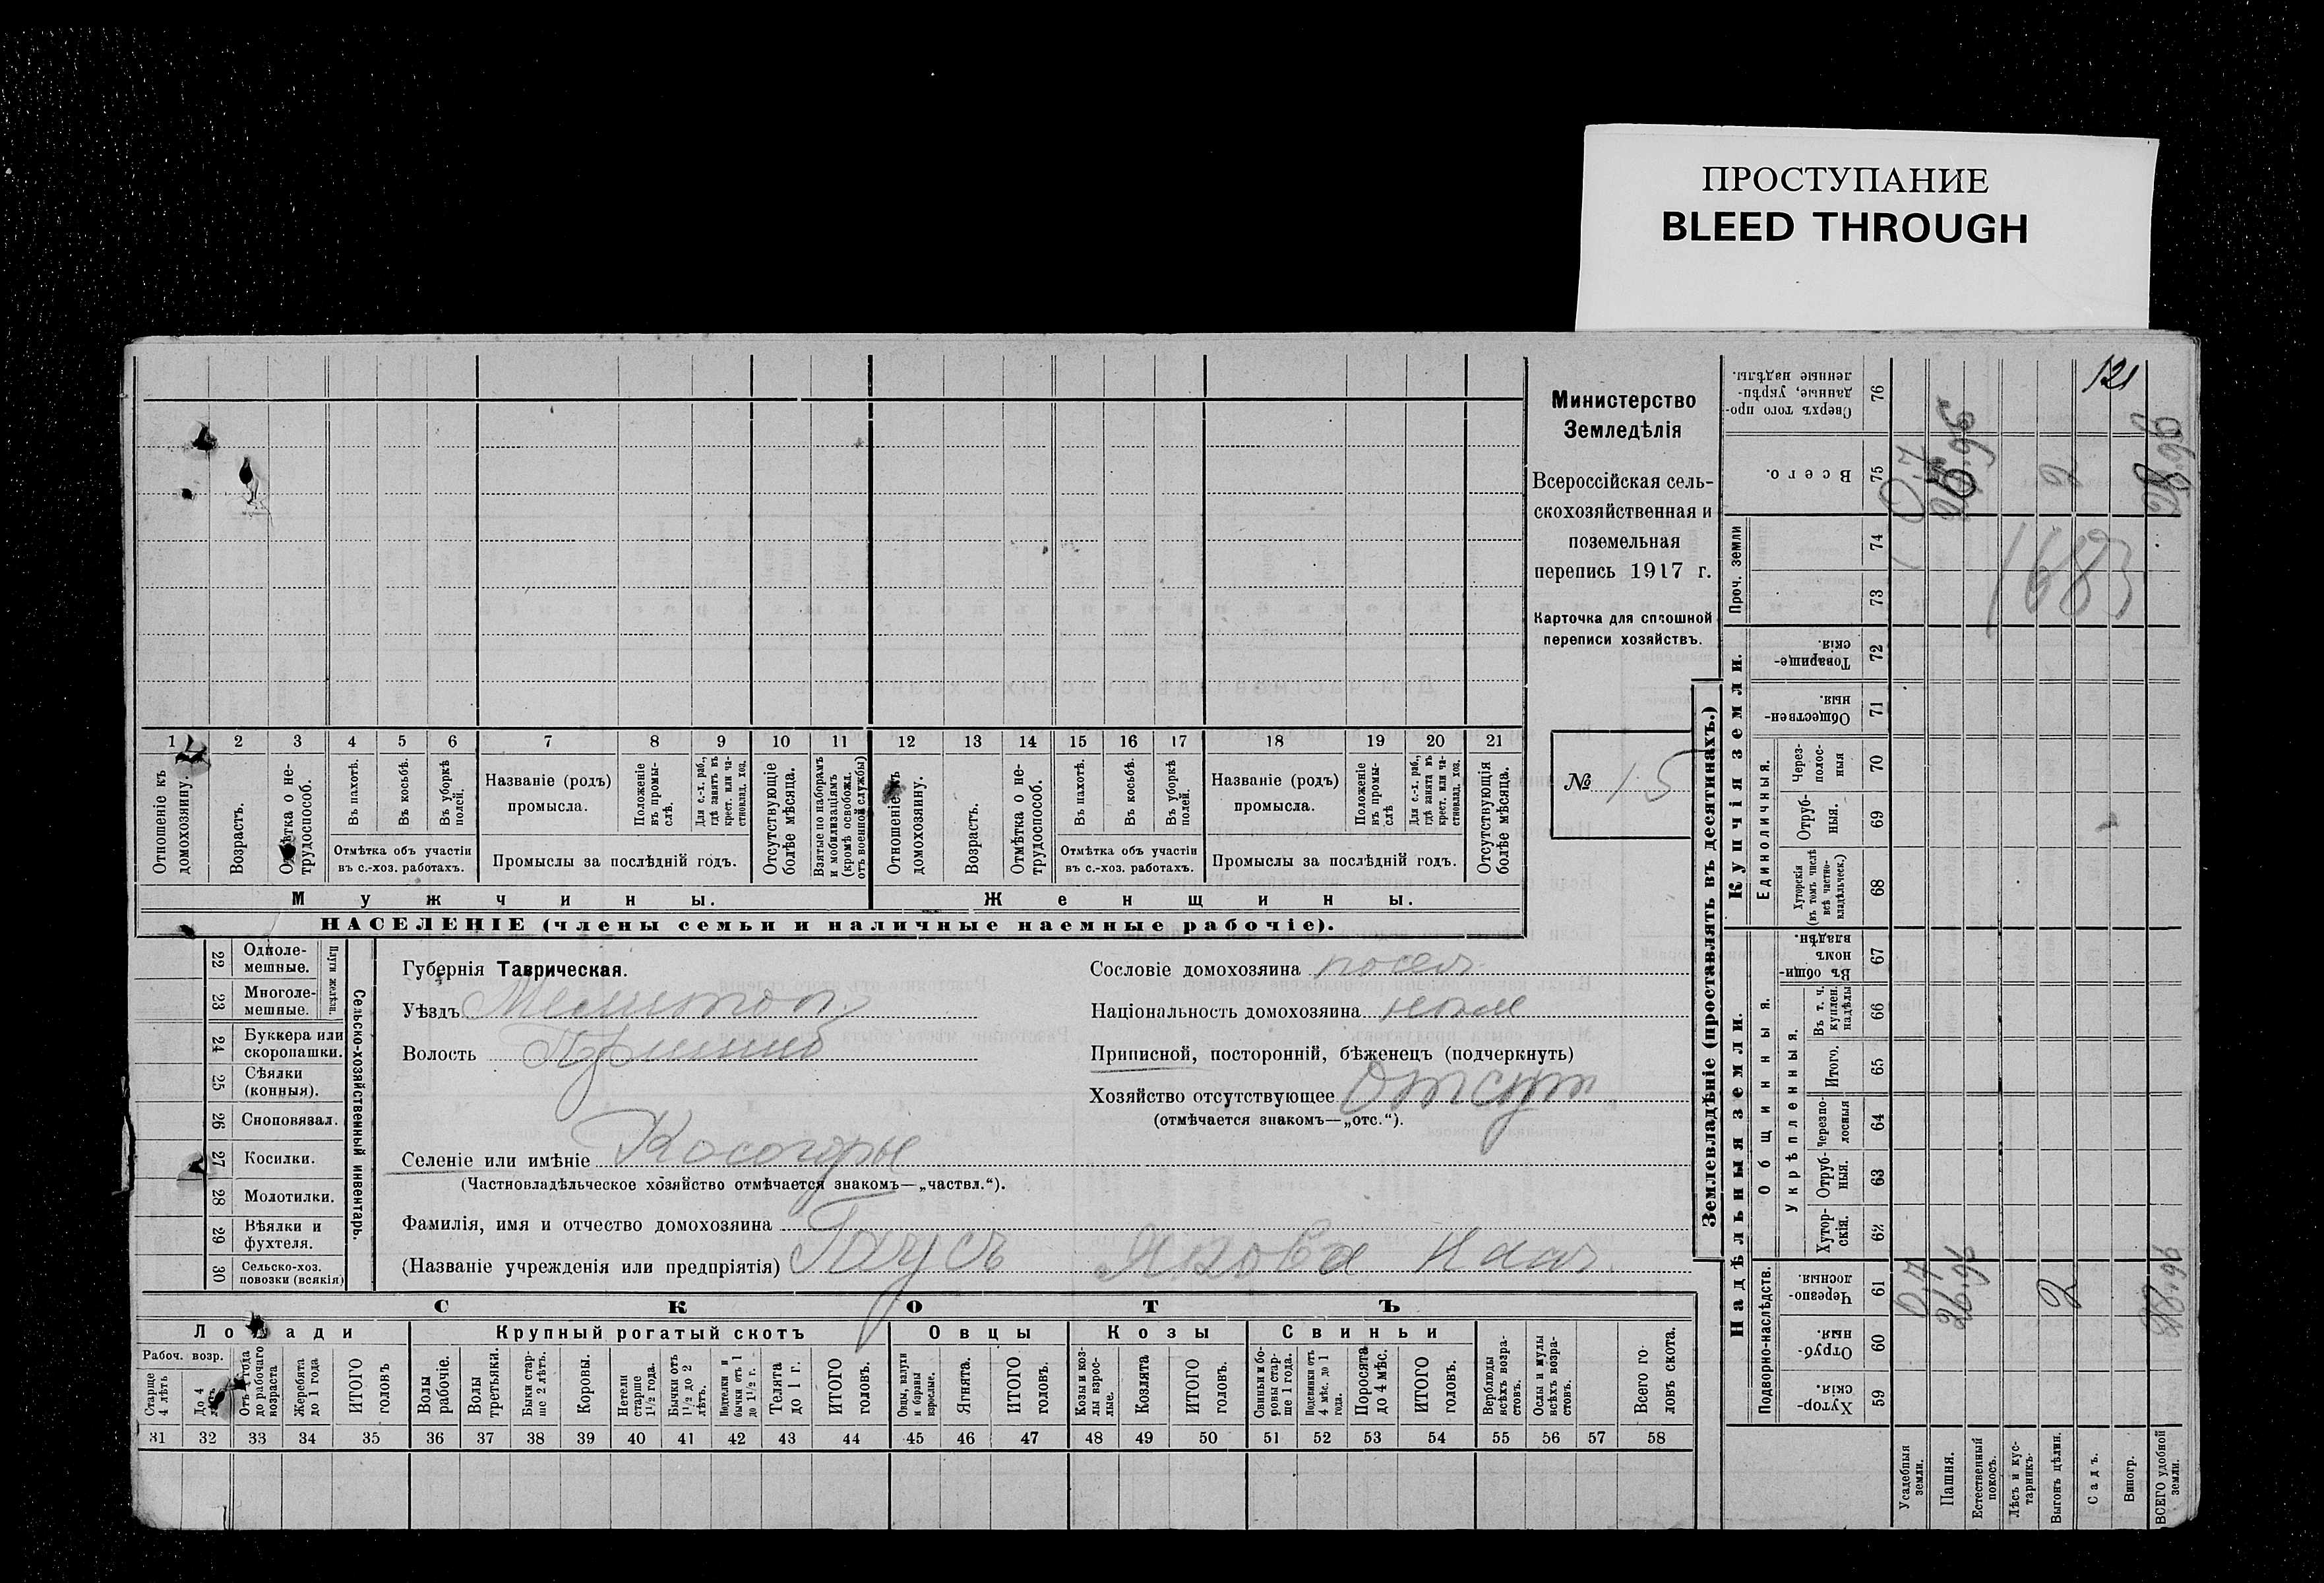 ПРОСТУПАНИЕ
BLEED THROUGH
121
Министерство
Земледѣлія
Всероссійская сель-
скохозяйственная и
поземельная
перепись 1917 г.
Карточка для сплошной
переписи хозяйствъ.
№ 15
1 2 3 4 5 6 7 8 9 10 11 12 13 14 15 16 17 18 19 20 21
Отношеніе къ домохозяину.
Возрастъ.
Отмѣтка о не-трудоспособ.
Въ пахотѣ.
Въ косьбѣ.
Въ уборкѣ полей.
Отмѣтка объ участіи
въ с.-хоз. работахъ.
Названіе (родъ)
промысла.
Положеніе въ промы-слѣ.
Для с.-х. раб., гдѣ занятъ въ крест. или ча-стновлад. хоз.
Промыслы за послѣдній годъ.
Отсутствующіе болѣе мѣсяца.
Взятые по наборамъ и мобилизаціямъ (кромѣ освобожд. отъ военной службы)
Отношеніе къ домохозяину.
Возрастъ.
Отмѣтка о не-трудоспособ.
Въ пахотѣ.
Въ косьбѣ.
Въ уборкѣ полей.
Отмѣтка объ участіи
въ с.-хоз. работахъ.
Названіе (родъ)
промысла.
Положеніе въ промы-слѣ
Для с.-х. раб., гдѣ занята въ крест. или ча-стновлад. хоз.
Промыслы за послѣдній годъ.
Отсутствующія болѣе мѣсяца.
Мужчины.
Женщины.
НАСЕЛЕНІЕ (члены семьи и наличные наемные рабочіе).
22 Одноле-мешные.
23 Многоле-мешные.
Плуги желѣзн.
24 Буккера или скоропашки.
25 Сѣялки (конныя).
26 Сноповязал.
27 Косилки.
28 Молотилки.
29 Вѣялки и фухтеля.
30 Сельско-хоз. повозки (всякія)
Сельско-хозяйственный инвентарь.
Губернія Таврическая.
Уѣздъ Мелитоп.
Волость
Селеніе или имѣніе Косогоры
(Частновладѣльческое хозяйство отмѣчается знакомъ—„частвл.“).
Фамилія, имя и отчество домохозяина
(Названіе учрежденія или предпріятія) Гаусъ Якова
Сословіе домохозяина посел.
Національность домохозяина
Приписной, посторонній, бѣженецъ (подчеркнуть)
Хозяйство отсутствующее Отсут
(отмѣчается знакомъ—„отс.“).
СКОТЪ
Лошади
Крупный рогатый скотъ
Овцы
Козы
Свиньи
Рабоч. возр.
Старше 4 лѣтъ
До 4 лѣтъ
Отъ 1 года до рабочаго возраста
Жеребята до 1 года
ИТОГО головъ
Волы рабочіе.
Волы третьяки.
Быки стар-ше 2 лѣтъ.
Коровы.
Нетели старше 1½ года.
Бычки отъ 1½ до 2 лѣтъ.
Подтелки и бычки отъ 1 до 1½ г.
Телята до 1 г.
ИТОГО головъ.
Овцы, валухи и бараны взрослые.
Ягнята.
ИТОГО головъ.
Козы и коз-лы взрос-лые.
Козлята
ИТОГО головъ.
Свиньи и бо-ровы стар-ше 1 года.
Подсвинки отъ 4 мѣс. до 1 года.
Поросята до 4 мѣс.
ИТОГО головъ.
Верблюды всѣхъ возра-стовъ.
Ослы и мулы всѣхъ возра-стовъ.
Всего го-ловъ скота.
31 32 33 34 35 36 37 38 39 40 41 42 43 44 45 46 47 48 49 50 51 52 53 54 55 56 57 58
Землевладѣніе (проставлять въ десятинахъ.)
Надѣльныя земли.
Купчія земли.
Проч. земли
Подворно-наслѣдств.
Общинныя.
Укрѣпленныя.
Единоличныя.
76 Сверхъ того про-данные, укрѣп-ленные надѣлы.
75 Всего.
74
73
72 Товарище-скія.
71 Обществен-ныя.
70 Через-полос-ныя
69 Отруб-ныя.
68 Хуторскія (въ томъ числѣ всѣ частно-владѣльческ.)
67 Въ общин-номъ владѣн.
66 Въ т. ч. куплен. надѣлы
65 Итого.
64 Черезпо-лосныя
63 Отруб-ныя.
62 Хутор-скія.
61 Черезпо-лосныя.
60 Отруб-ныя.
59 Хутор-скія.
Усадебныя земли.
Пашня.
Естественный покосъ.
Лѣсъ и кус-тарникъ.
Выгонъ цѣлин.
Садъ.
Виногр.
ВСЕГО удобной земли.
0,7
2
1683
0,7
26,96
2